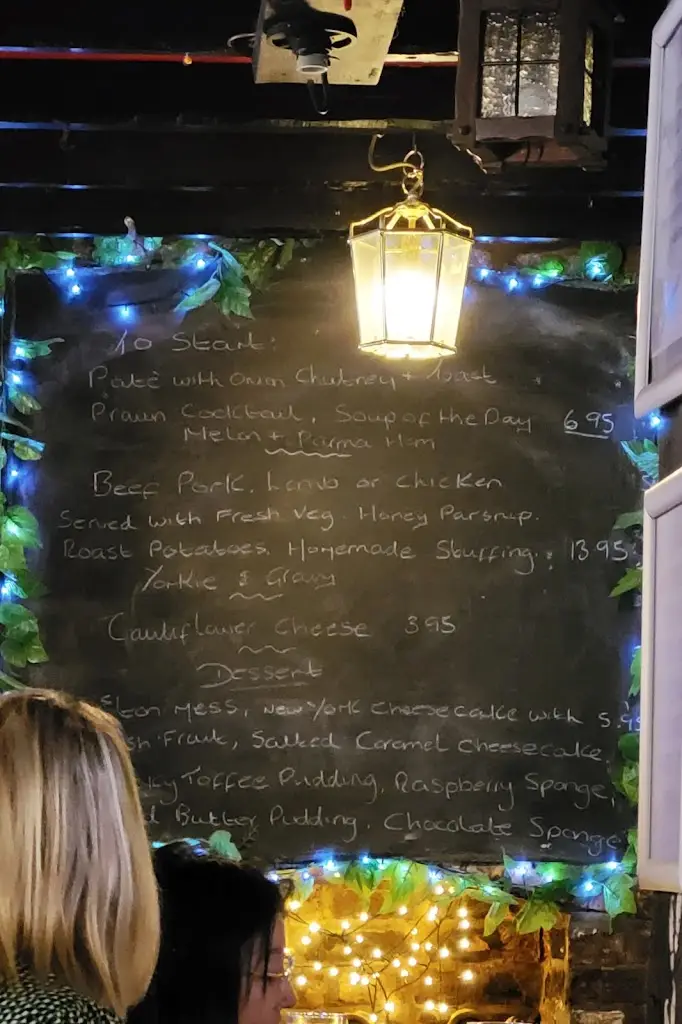 To Start:
Pate with Onion Chutney + Toast
Prawn Cocktail, Soup of the Day 6.95
Melon + Parma Ham
Beef Pork, Lamb or Chicken
Served with Fresh Veg. Honey Parsnip.
Roast Potatoes. Homemade Stuffing. 13.95
Yorkie & Gravy
Cauliflower Cheese 3.95
Dessert
Eton Mess, New York Cheesecake with 5.95
Fruit, Salted Caramel Cheesecake,
Toffee Pudding, Raspberry Sponge,
Butter Pudding, Chocolate Sponge